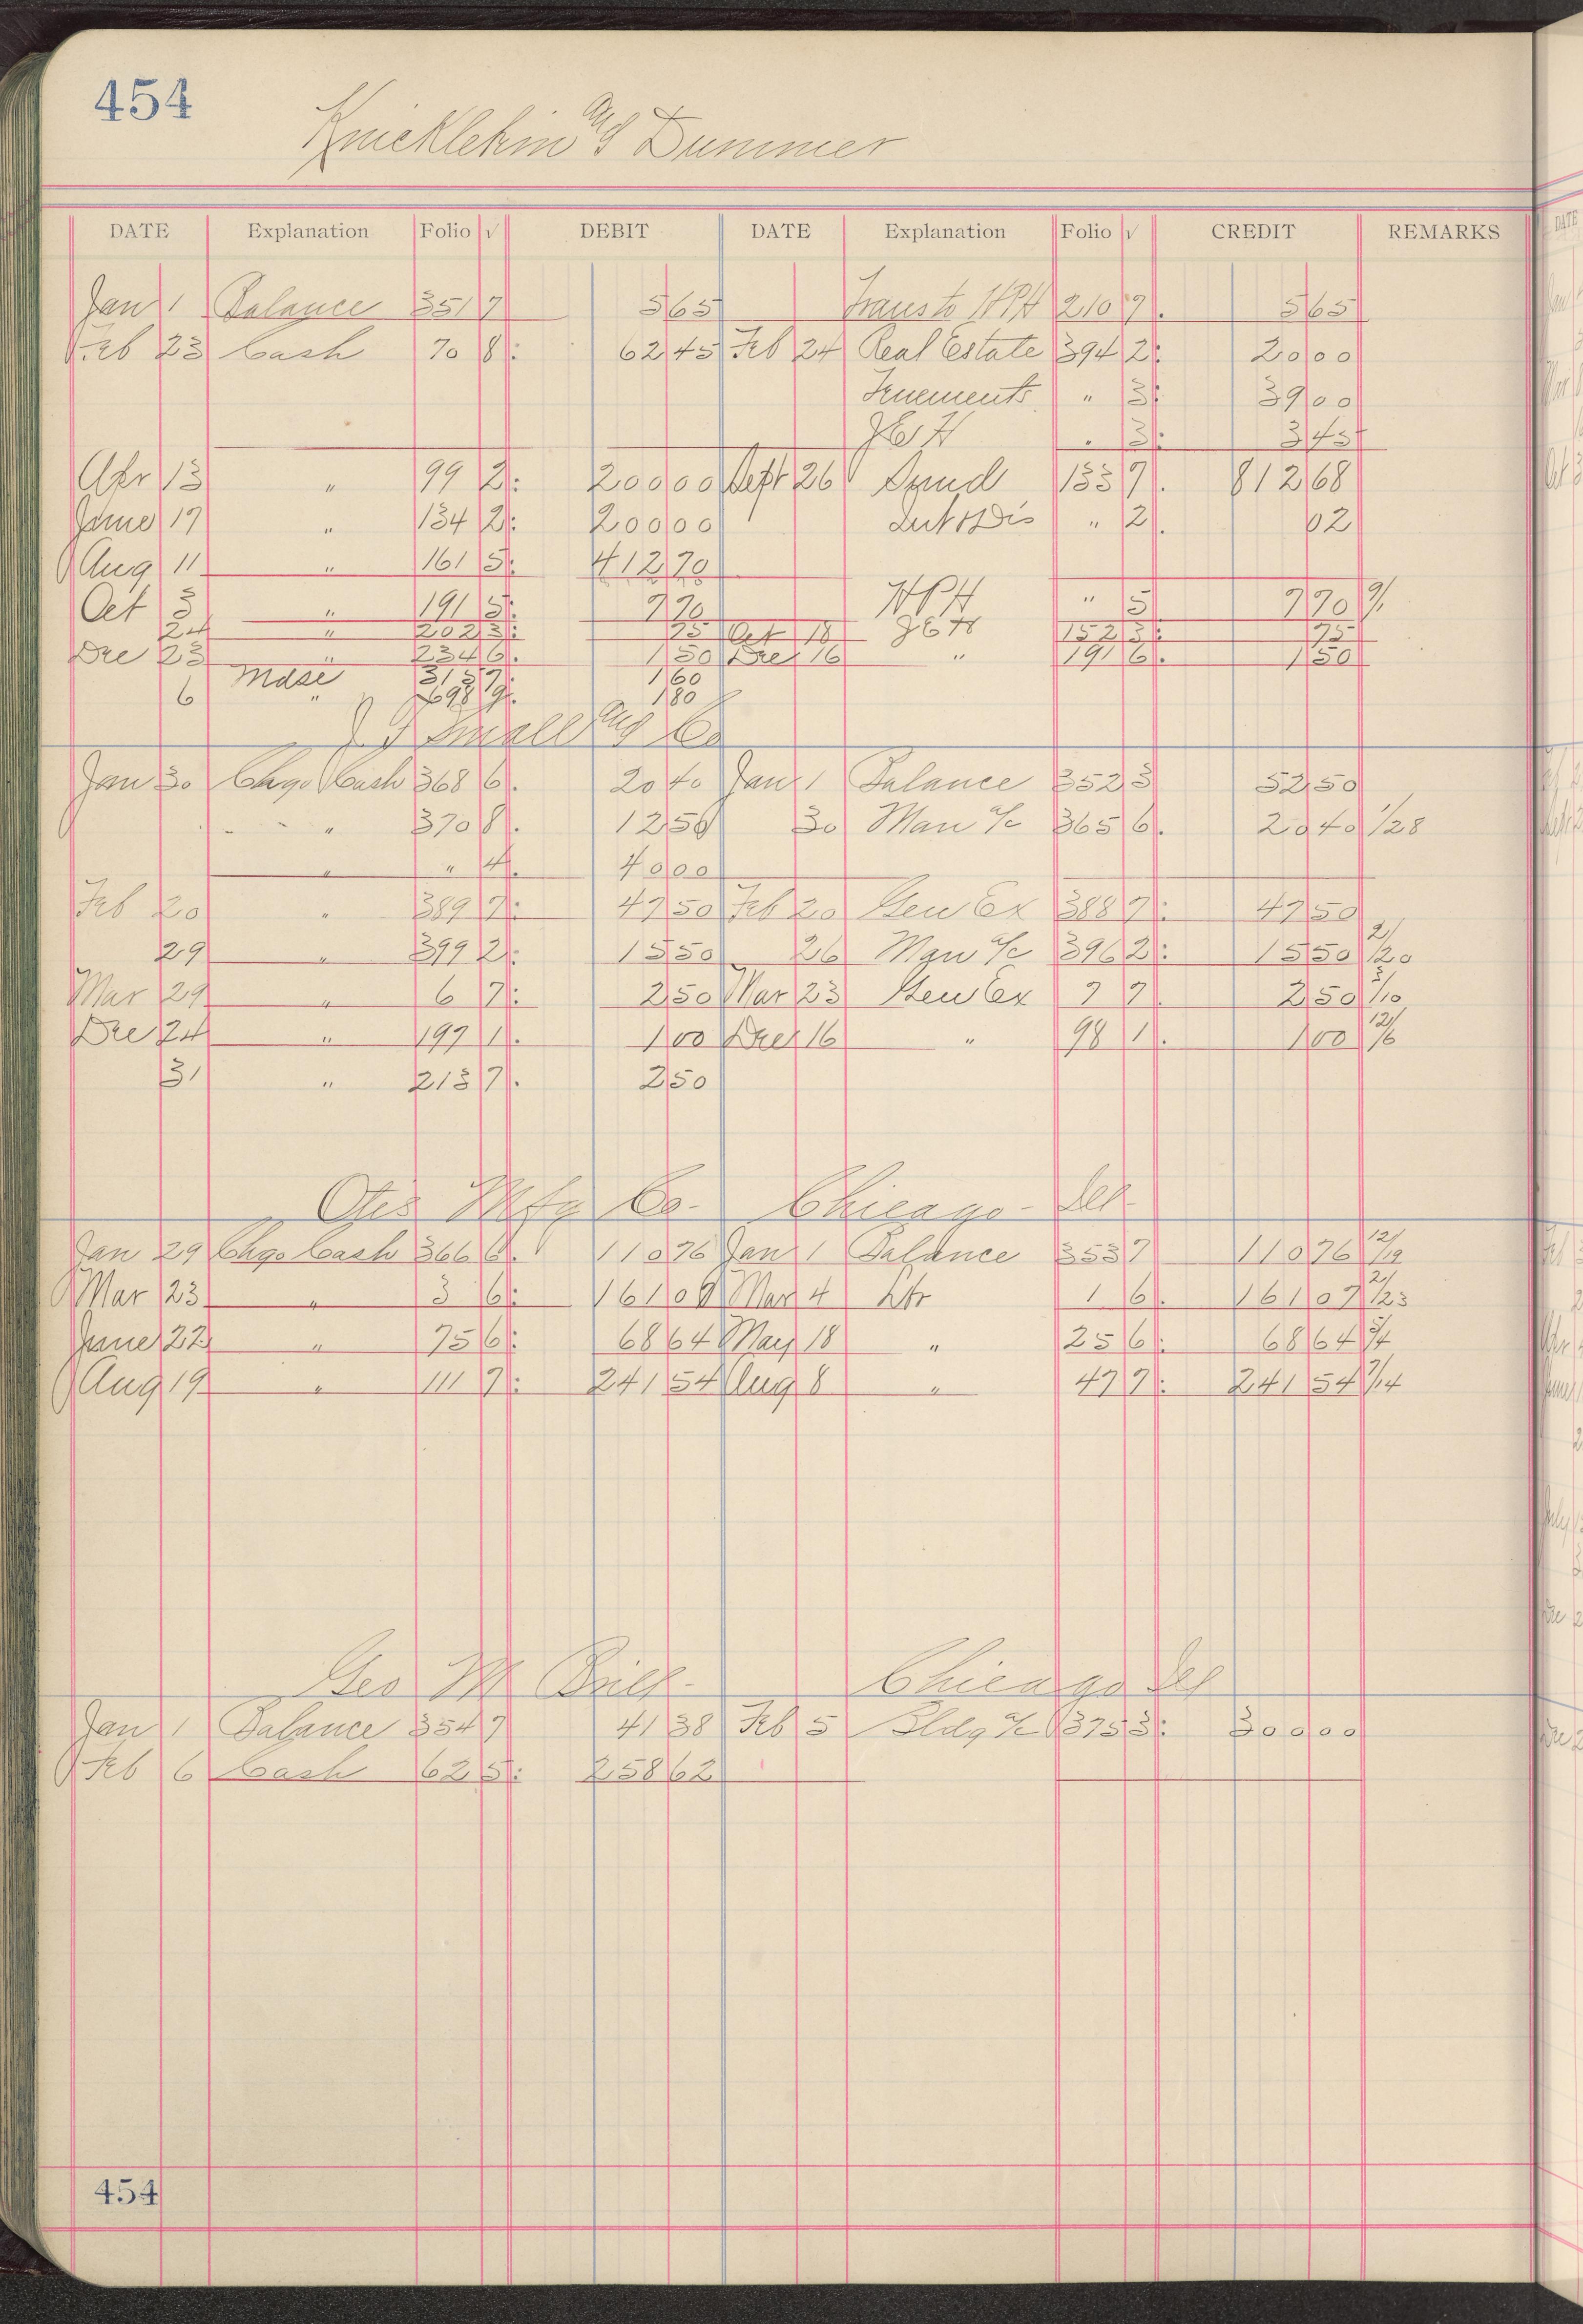 454
Knicklekin and Dummer
DATE Explanation Folio √ DEBIT DATE Explanation Folio √ CREDIT REMARKS
Jan 1 Balance 351 7 5 65 Trans to HPH 210 7. 5 65
Feb 23 Cash 70 8: 62 45 Feb 24 Real Estate 394 2: 20 00
Tenements " 3: 39 00
JEH " 3: 3 45
Apr 13 " 99 2: 200 00 Sept 26 Sund 133 7. 812 68
June 17 " 134 2: 200 00 Int & Dis " 2. 02
Aug 11 " 161 5: 412 70
Oct 3 " 191 5: 7 70 HPH " 5 7 70 9/1
24 " 202 3: 75 Oct 18 JEH 152 3: 75
Dec 23 " 234 6. 1 50 Dec 16 " 191 6. 1 50
Mdse 315 7. 1 60
6 " 698 9. 1 80
J J Small and Co
Jan 30 Chgo Cash 368 6. 20 40 Jan 1 Balance 352 3 52 50
" 370 8. 12 50 30 Man a/c 365 6. 20 40 1/28
" " 4. 40 00
Feb 20 " 389 7: 47 50 Feb 20 Gen Ex 388 7: 47 50
29 " 399 2: 15 50 26 Man a/c 396 2: 15 50 2/20
Mar 29 " 6 7: 2 50 Mar 23 Gen Ex 7 7. 2 50 3/10
Dec 24 " 197 1. 1 00 Dec 16 " 98 1. 1 00 12/6
31 " 213 7. 2 50
Otis Mfg Co - Chicago - Ill -
Jan 29 Chgo Cash 366 6. 110 76 Jan 1 Balance 353 7 110 76 12/19
Mar 23 " 3 6: 161 07 Mar 4 Ltr 1 6. 161 07 2/23
June 22 " 75 6: 68 64 May 18 " 25 6: 68 64 5/4
Aug 19 " 111 7: 241 54 Aug 8 " 47 7: 241 54 7/14
Geo M Brill - Chicago Ill
Jan 1 Balance 354 7 41 38 Feb 5 Bldg a/c 375 3: 300 00
Feb 6 Cash 62 5: 258 62
454